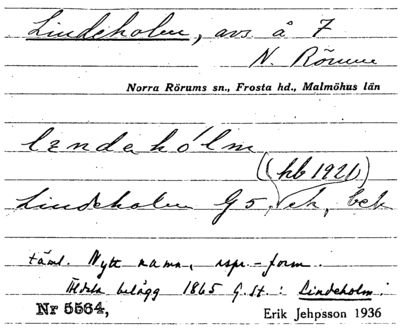 Lindeholm, avs å 7
N. Rörum
Norra Rörums sn., Frosta hd., Malmöhus län
lendehólm
(hb 1921)
Lindeholm G 5, ek, bek
täml. Nytt namn, rspr.-form.
Äldsta belägg 1865 G.St.: Lindeholm.
Nr 5564,
Erik Jehpsson 1936